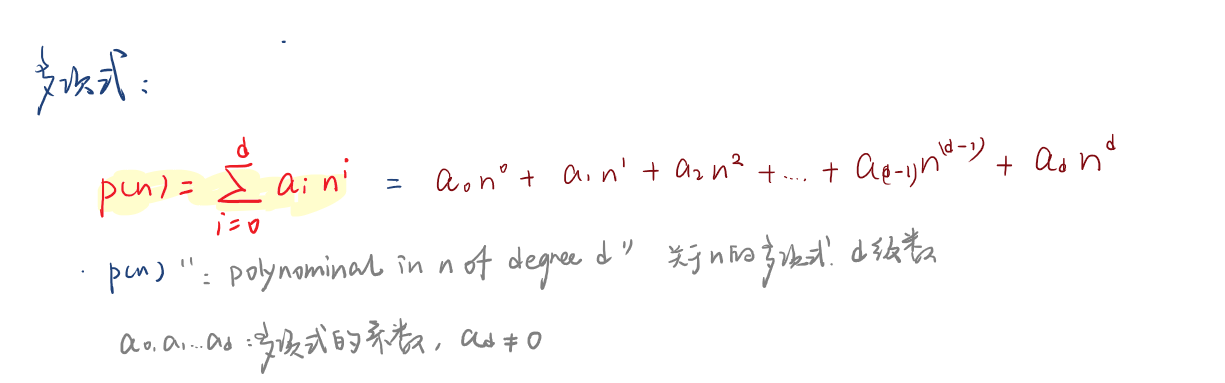 多项式:
p(n) = ∑_{i=0}^{d} a_i n^i = a_0 n^0 + a_1 n^1 + a_2 n^2 + .... + a_{(d-1)} n^{(d-1)} + a_d n^d
p(n) ": polynominal in n of degree d" 关于n的多项式. d级数
a_0, a_1 ... a_d : 多项式的系数, a_d ≠ 0